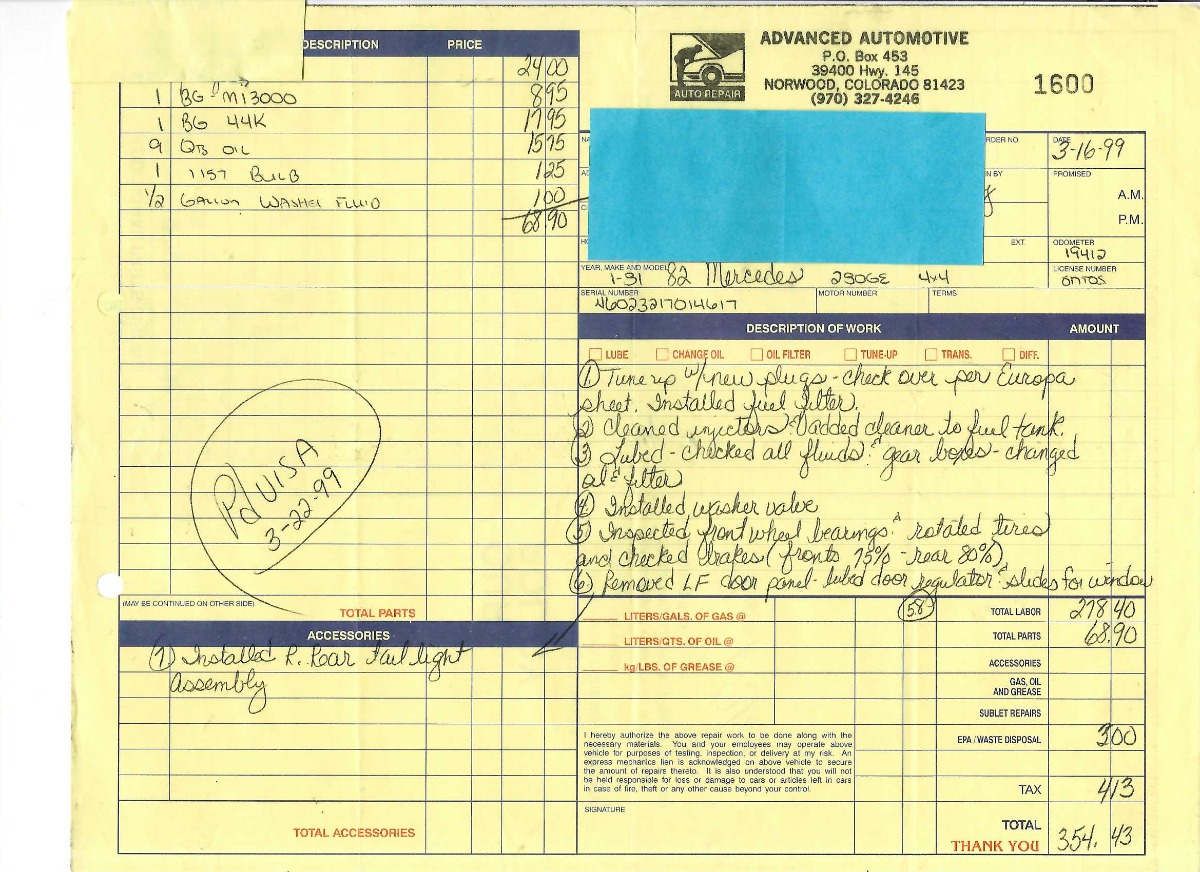 DESCRIPTION PRICE
24 00
1 BG Mi3000 8 95
1 BG 44K 17 95
9 QTS OIL 15 75
1 1157 BULB 1 25
1/2 GALLON WASHER FLUID 1 00
68.90
Pd VISA
3-22-99
(MAY BE CONTINUED ON OTHER SIDE)
TOTAL PARTS
ACCESSORIES
(7) Installed R. Rear tail light
assembly
TOTAL ACCESSORIES
AUTO REPAIR
ADVANCED AUTOMOTIVE
P.O. Box 453
39400 Hwy. 145
NORWOOD, COLORADO 81423
(970) 327-4246
1600
RDER NO. DATE
3-16-99
N BY PROMISED
A.M.
P.M.
EXT. ODOMETER
19412
YEAR, MAKE AND MODEL LICENSE NUMBER
1-31 82 Mercedes 230GE 4x4
SERIAL NUMBER MOTOR NUMBER TERMS
46023217014617
DESCRIPTION OF WORK AMOUNT
LUBE CHANGE OIL OIL FILTER TUNE-UP TRANS. DIFF.
(1) Tune up w/new plugs - check over per Europa
sheet. Installed fuel filter.
(2) Cleaned injectors & added cleaner to fuel tank.
(3) Lubed - checked all fluids & gear boxes - changed
oil & filter
(4) Installed washer valve
(5) Inspected front wheel bearings & rotated tires
and checked brakes (fronts 75% - rear 80%)
(6) Removed LF door panel - lubed door regulator & slides for window
LITERS/GALS. OF GAS @ 5.8 TOTAL LABOR 278 40
LITERS/QTS. OF OIL @ TOTAL PARTS 68.90
kg/LBS. OF GREASE @ ACCESSORIES
GAS, OIL
AND GREASE
SUBLET REPAIRS
I hereby authorize the above repair work to be done along with the
necessary materials. You and your employees may operate above
vehicle for purposes of testing, inspection, or delivery at my risk. An
express mechanics lien is acknowledged on above vehicle to secure
the amount of repairs thereto. It is also understood that you will not
be held responsible for loss or damage to cars or articles left in cars
in case of fire, theft or any other cause beyond your control.
EPA / WASTE DISPOSAL 3 00
TAX 4 13
SIGNATURE
TOTAL 354. 43
THANK YOU